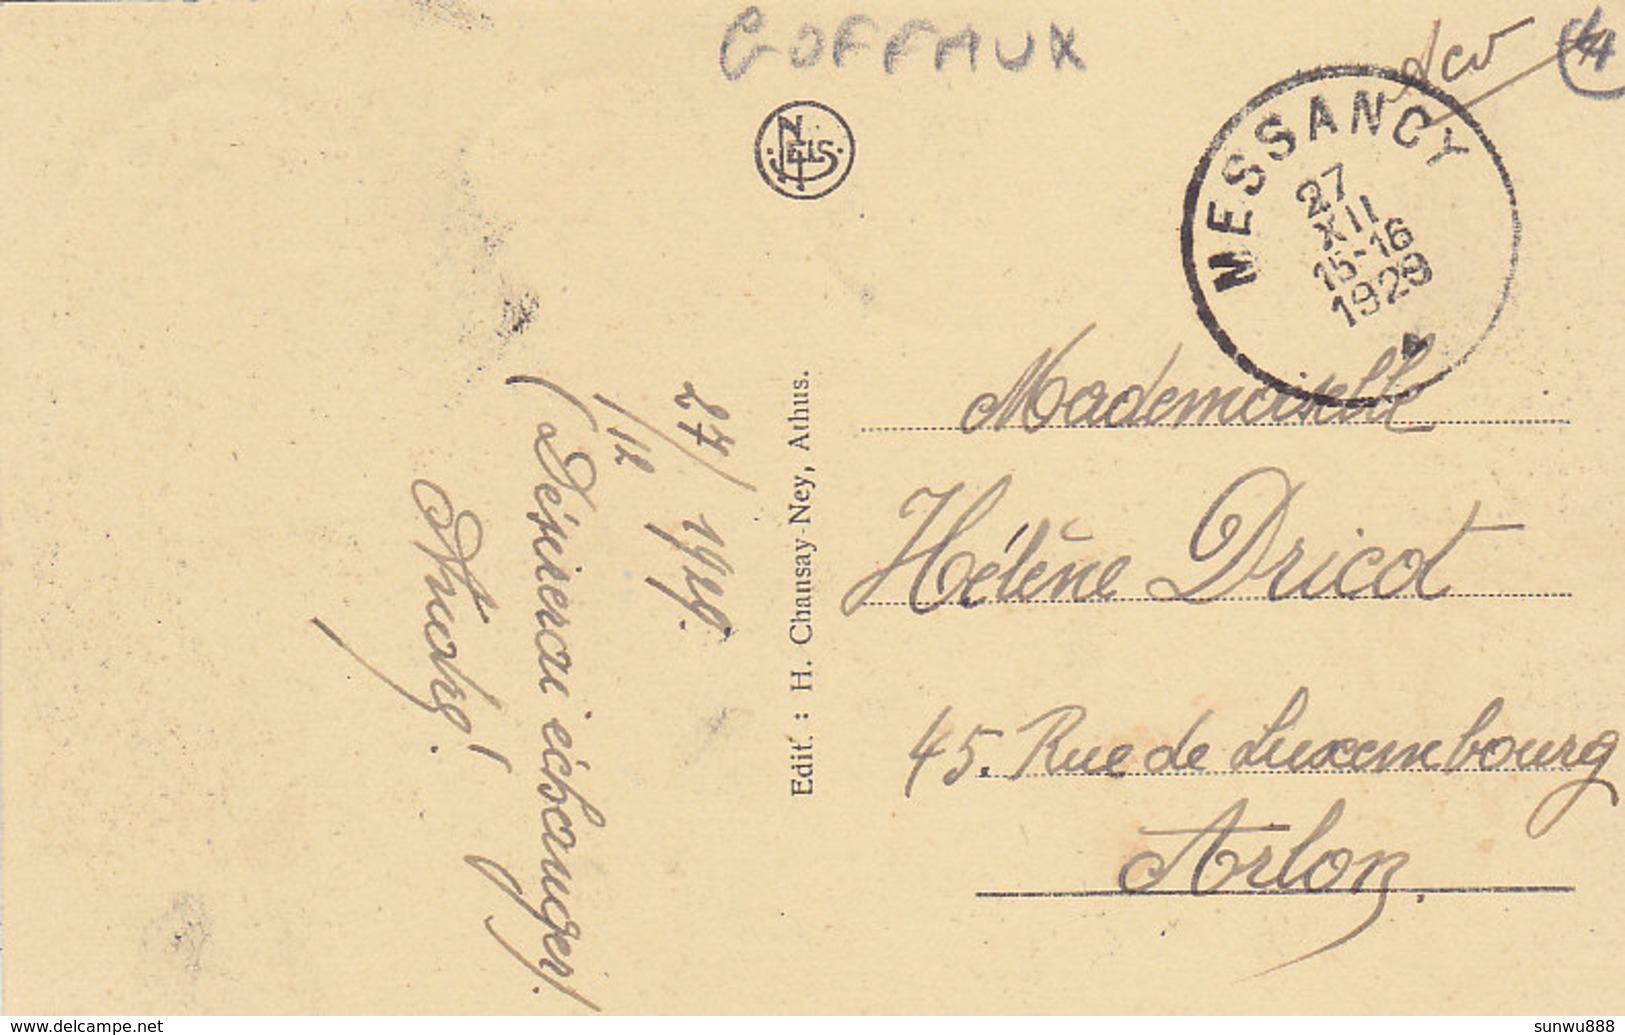 GOFFAUX
NELS
MESSANCY
27
XII
15-16
1929
27/12 1929.
(Désirerai échanger)
Edit. : H. Chansay-Ney, Athus.
Mademoiselle
Hélène Dricot
45. Rue de Luxembourg
Arlon.
www.delcampe.net
sunwu888